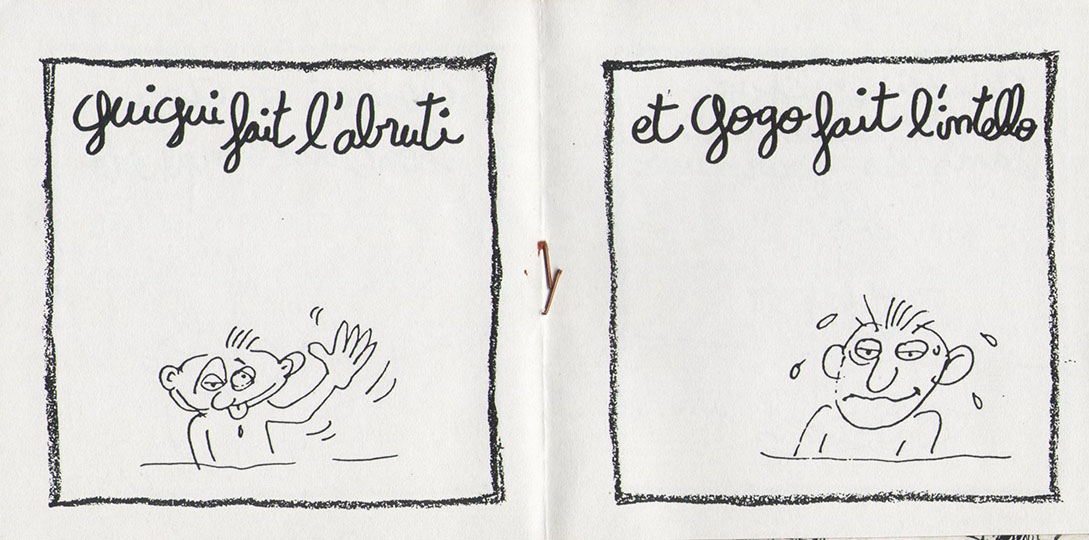 guigui fait l'abruti
et gogo fait l'intello